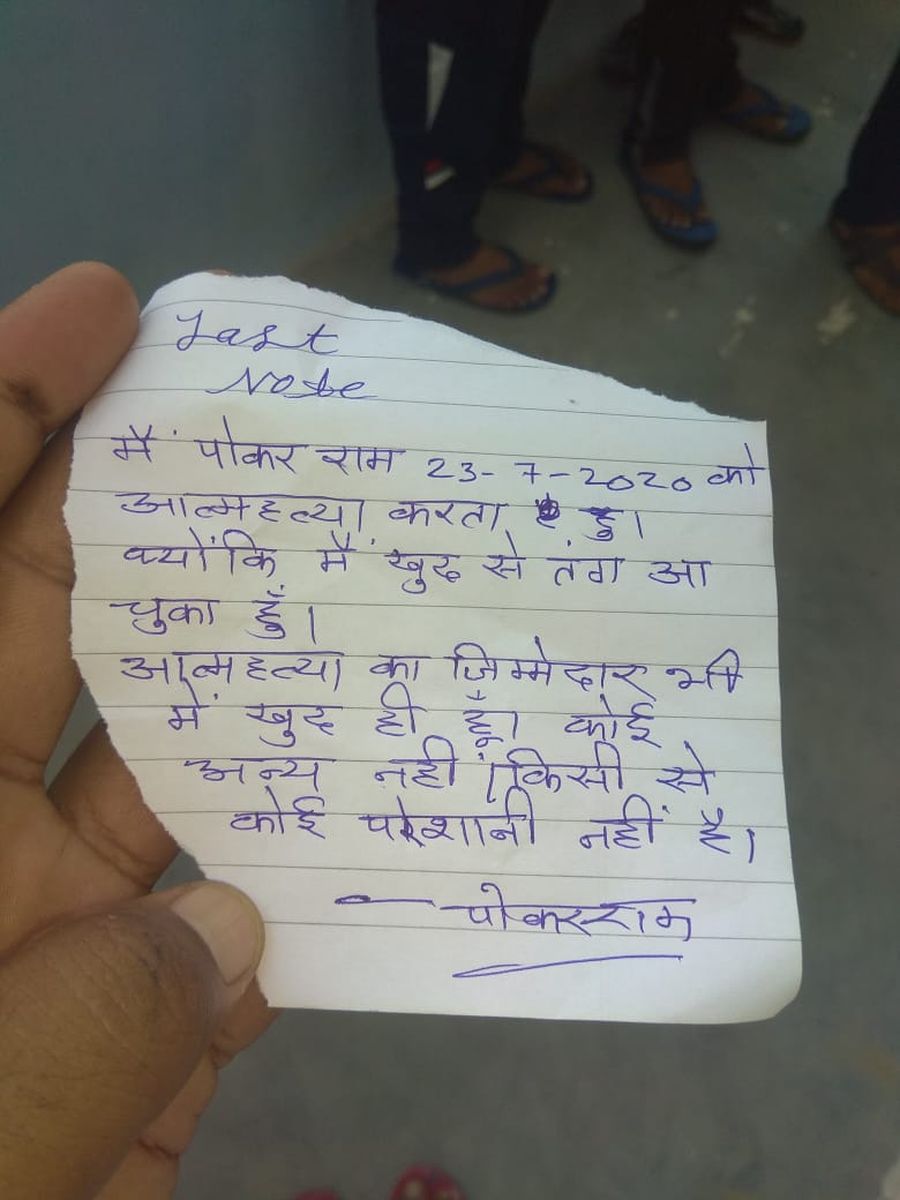 Last
Note
मैं पोकर राम 23-7-2020 को
आत्महत्या करता हुं।
क्योंकि मैं खुद से तंग आ
चुका हुँ।
आत्महत्या का जिम्मेदार भी
में खुद ही हूँ। कोई
अन्य नहीं। किसी से
कोई परेशानी नहीं है।
— पोकरराम